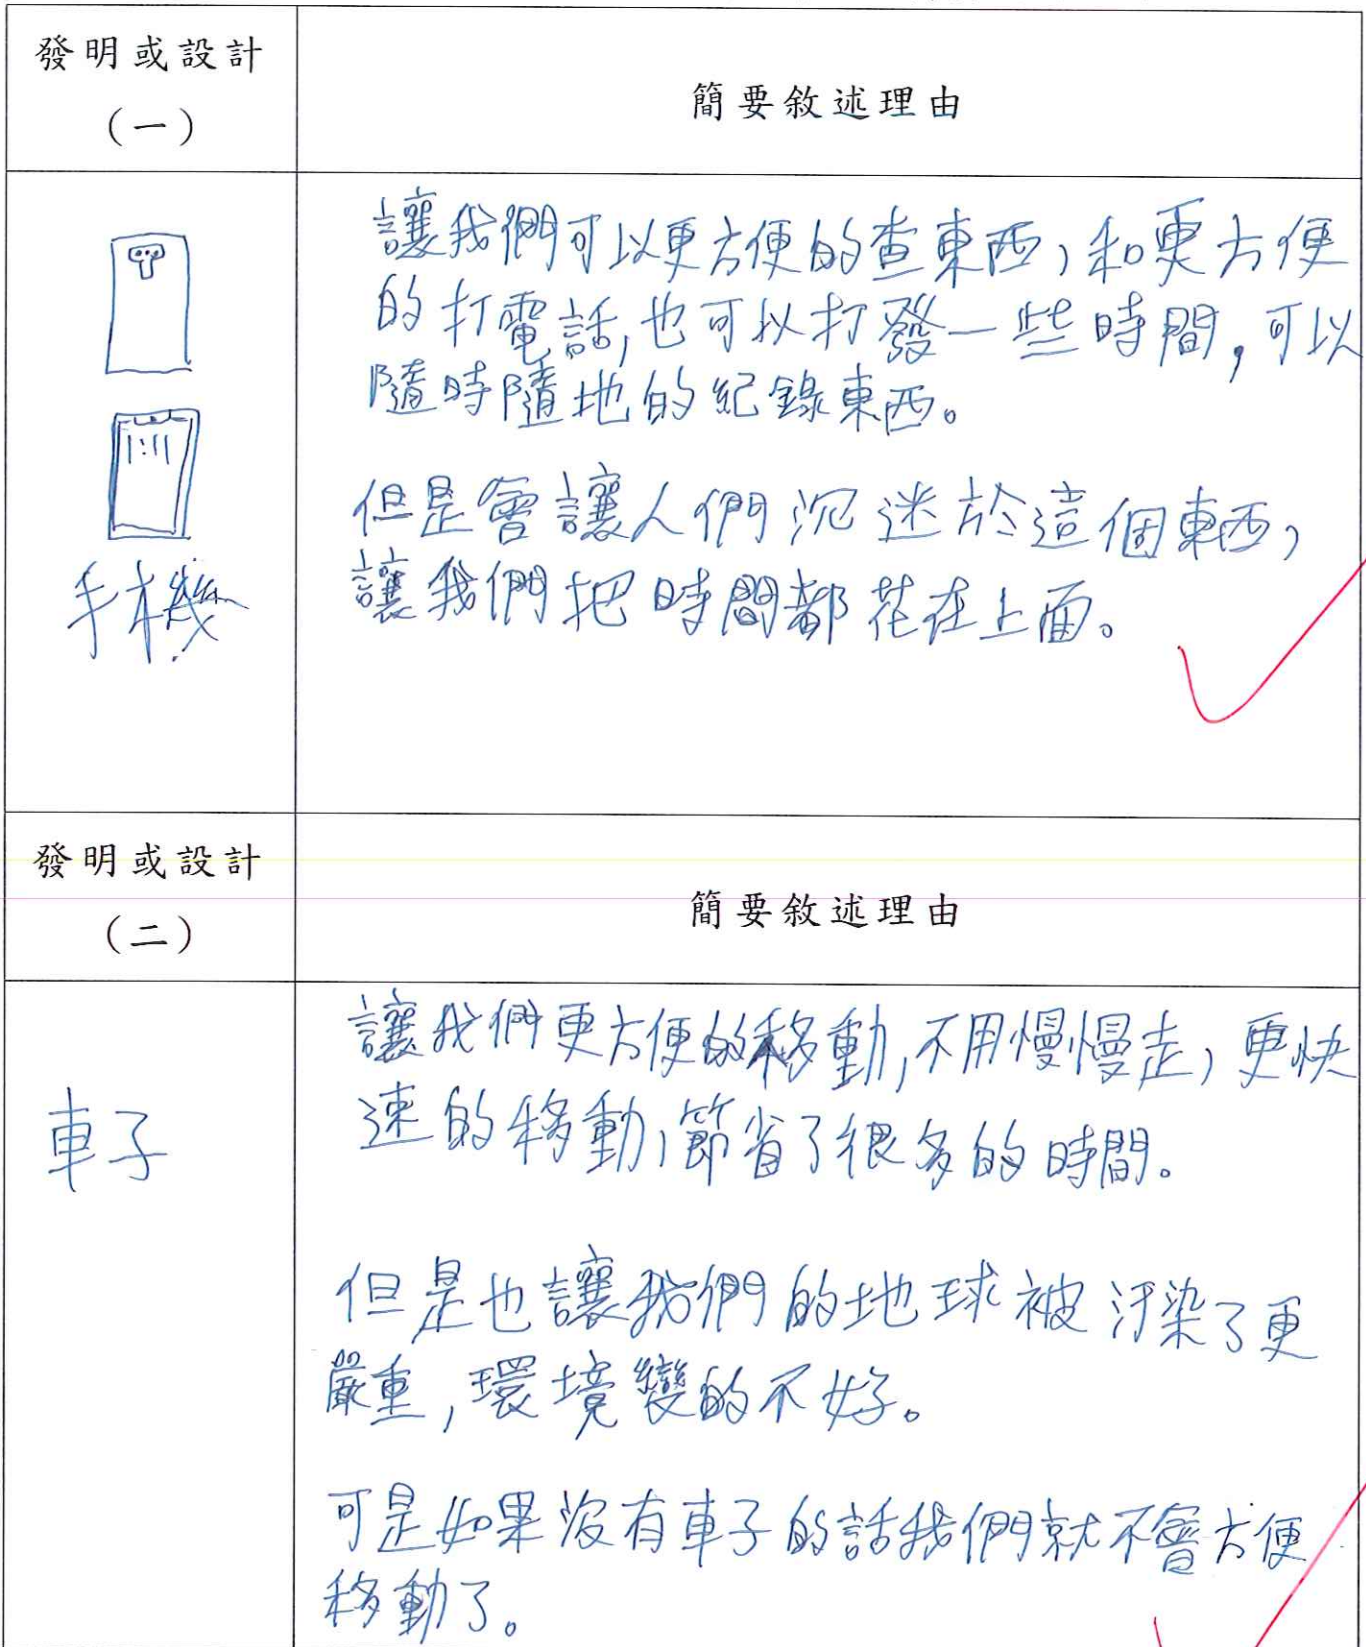 發明或設計
（一）
簡要敘述理由
1:11
手機
讓我們可以更方便的查東西，和更方便
的打電話，也可以打發一些時間，可以
隨時隨地的紀錄東西。
但是會讓人們沉迷於這個東西，
讓我們把時間都花在上面。
發明或設計
（二）
簡要敘述理由
車子
讓我們更方便的移動，不用慢慢走，更快
速的移動，節省了很多的時間。
但是也讓我們的地球被汙染了更
嚴重，環境變的不好。
可是如果沒有車子的話我們就不會方便
移動了。